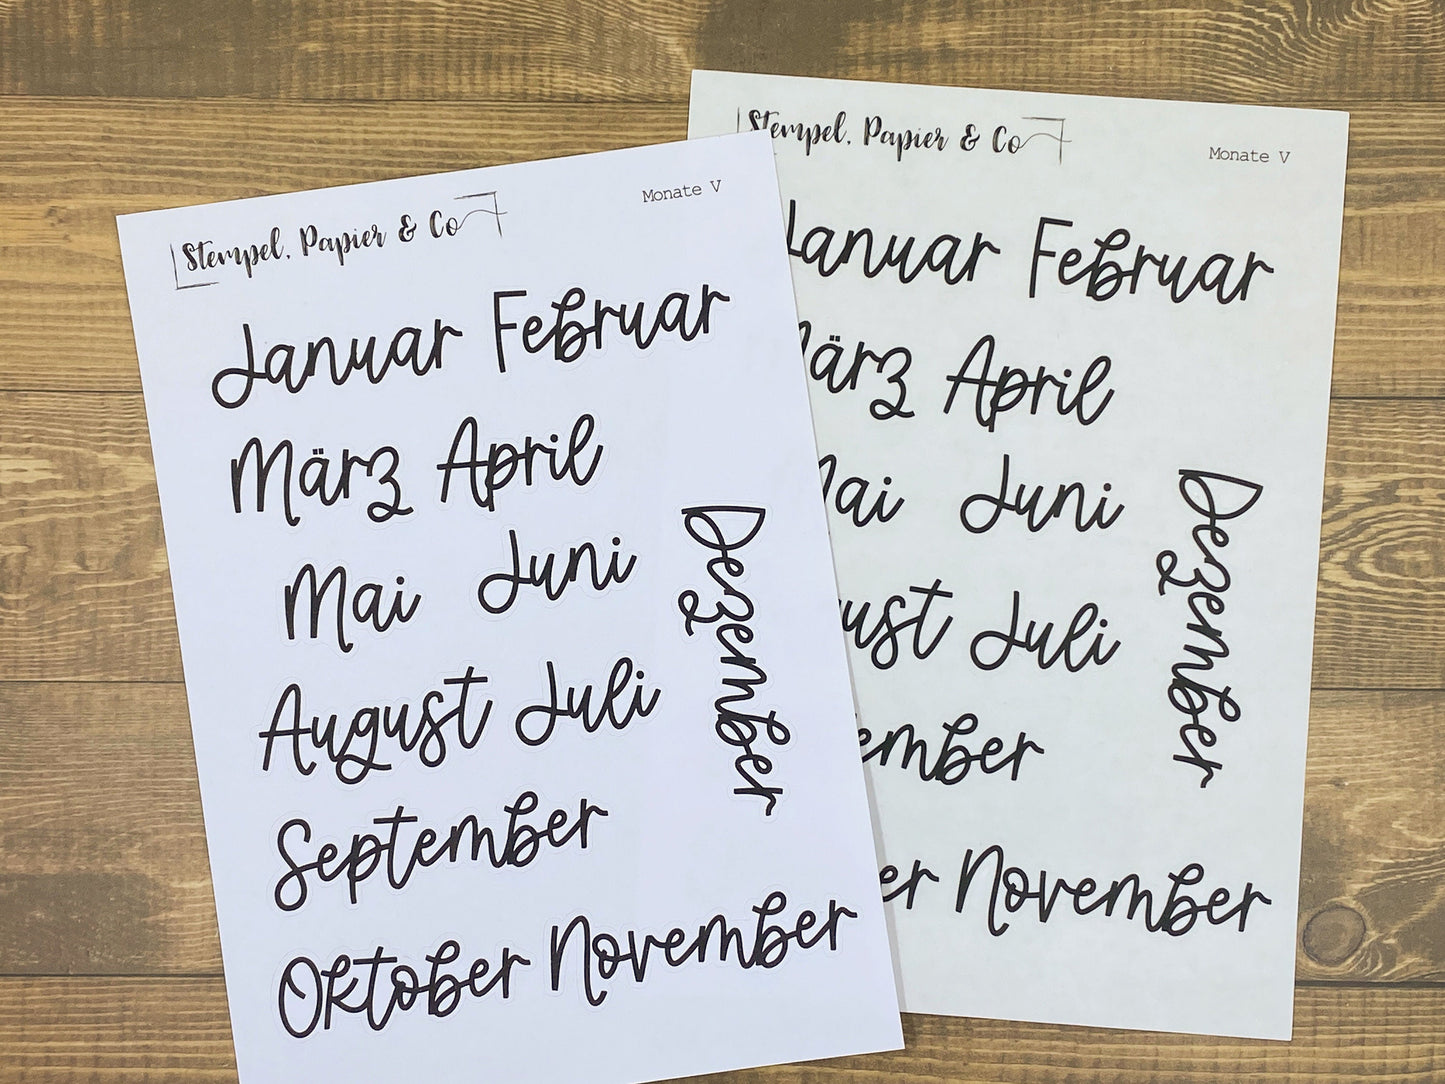 Stempel, Papier & Co
Monate V
Januar Februar
März April
Mai Juni
August Juli
September
Oktober November
Dezember
Stempel, Papier & Co
Monate V
Januar Februar
März April
Mai Juni
ust Juli
ember
er November
Dezember